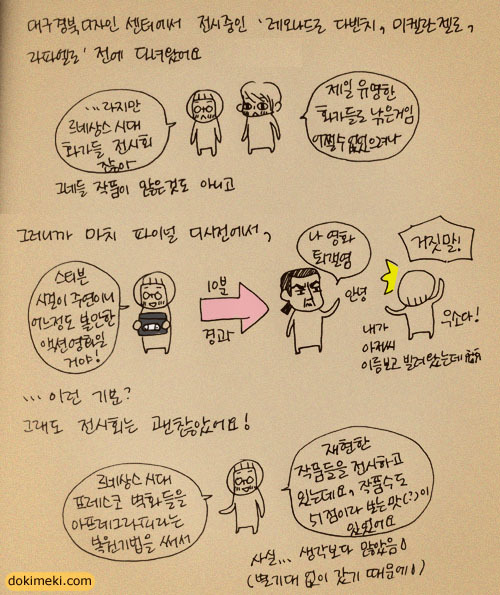 대구경북디자인 센터에서 전시중인 '레오나드로 다빈치, 미켈란젤로,
라파엘로' 전에 다녀왔어요
...라지만
르네상스 시대
화가들 전시회
잖아
제일 유명한
화가들로 낚은거임
어쩔수없었으려나
그네들 작품이 많은것도 아니고
그러니까 마치 파이널 디시전에서,
스티븐
시걸이 주연이니
어느정도 볼만한
액션영화일
거야!
10분
경과
나 영화
퇴갤염
안녕
거짓말!
우소다!
내가
아저씨
이름보고 빌려왔는데
...이런 기분?
그래도 전시회는 괜찮았어요!
르네상스 시대
프레스코 벽화들을
아프레그라피라는
복원기법을 써서
재현한
작품들을 전시하고
있는데요, 작품수도
51점이라 보는 맛(?)이
있었어요
사실... 생각보다 많았음!
(별기대 없이 갔기 때문에!)
dokimeki.com